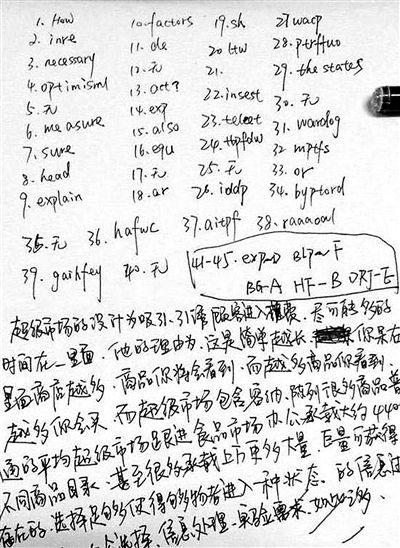 1. How 10. factors 19. sh 27. wacp
2. inre 11. de 20. ltw 28. ptrffuo
3. necessary 12. 无 21. 29. the states
4. optimisml 13. act? 22. insest 30. 无
5. 无 14. exp 23. teleet 31. wardog
6. measure 15. also 24. 32. mptfs
7. sure 16. equ 25. 无 33. or
8. head 17. 无 26. iddp 34. byptord
9. explain 18. ar
35. 无 36. hafwc 37. aitpf 38. raaaoal
39. gaihfey 40. 无 41-45. exp=D B F
BG-A HF-B DRJ-E
超级市场的设计为吸引 顾客进入 尽可能多的
时间在一里面. 他的理由为: 这是简单越长 你呆在
里面商店越多. 商品你将会看到. 而越多商品你看到.
越多你会买. 而超级市场包含容纳. 陈列很多商品 普
通的平均超级市场 进食品市场 办公承载大约 440
不同商品目录. 甚至很多承载上万更多大量. 巨量可获得
存在的选择足够使得 购物者进入一种状态. 的信息过
选择. 信息处理 需求.